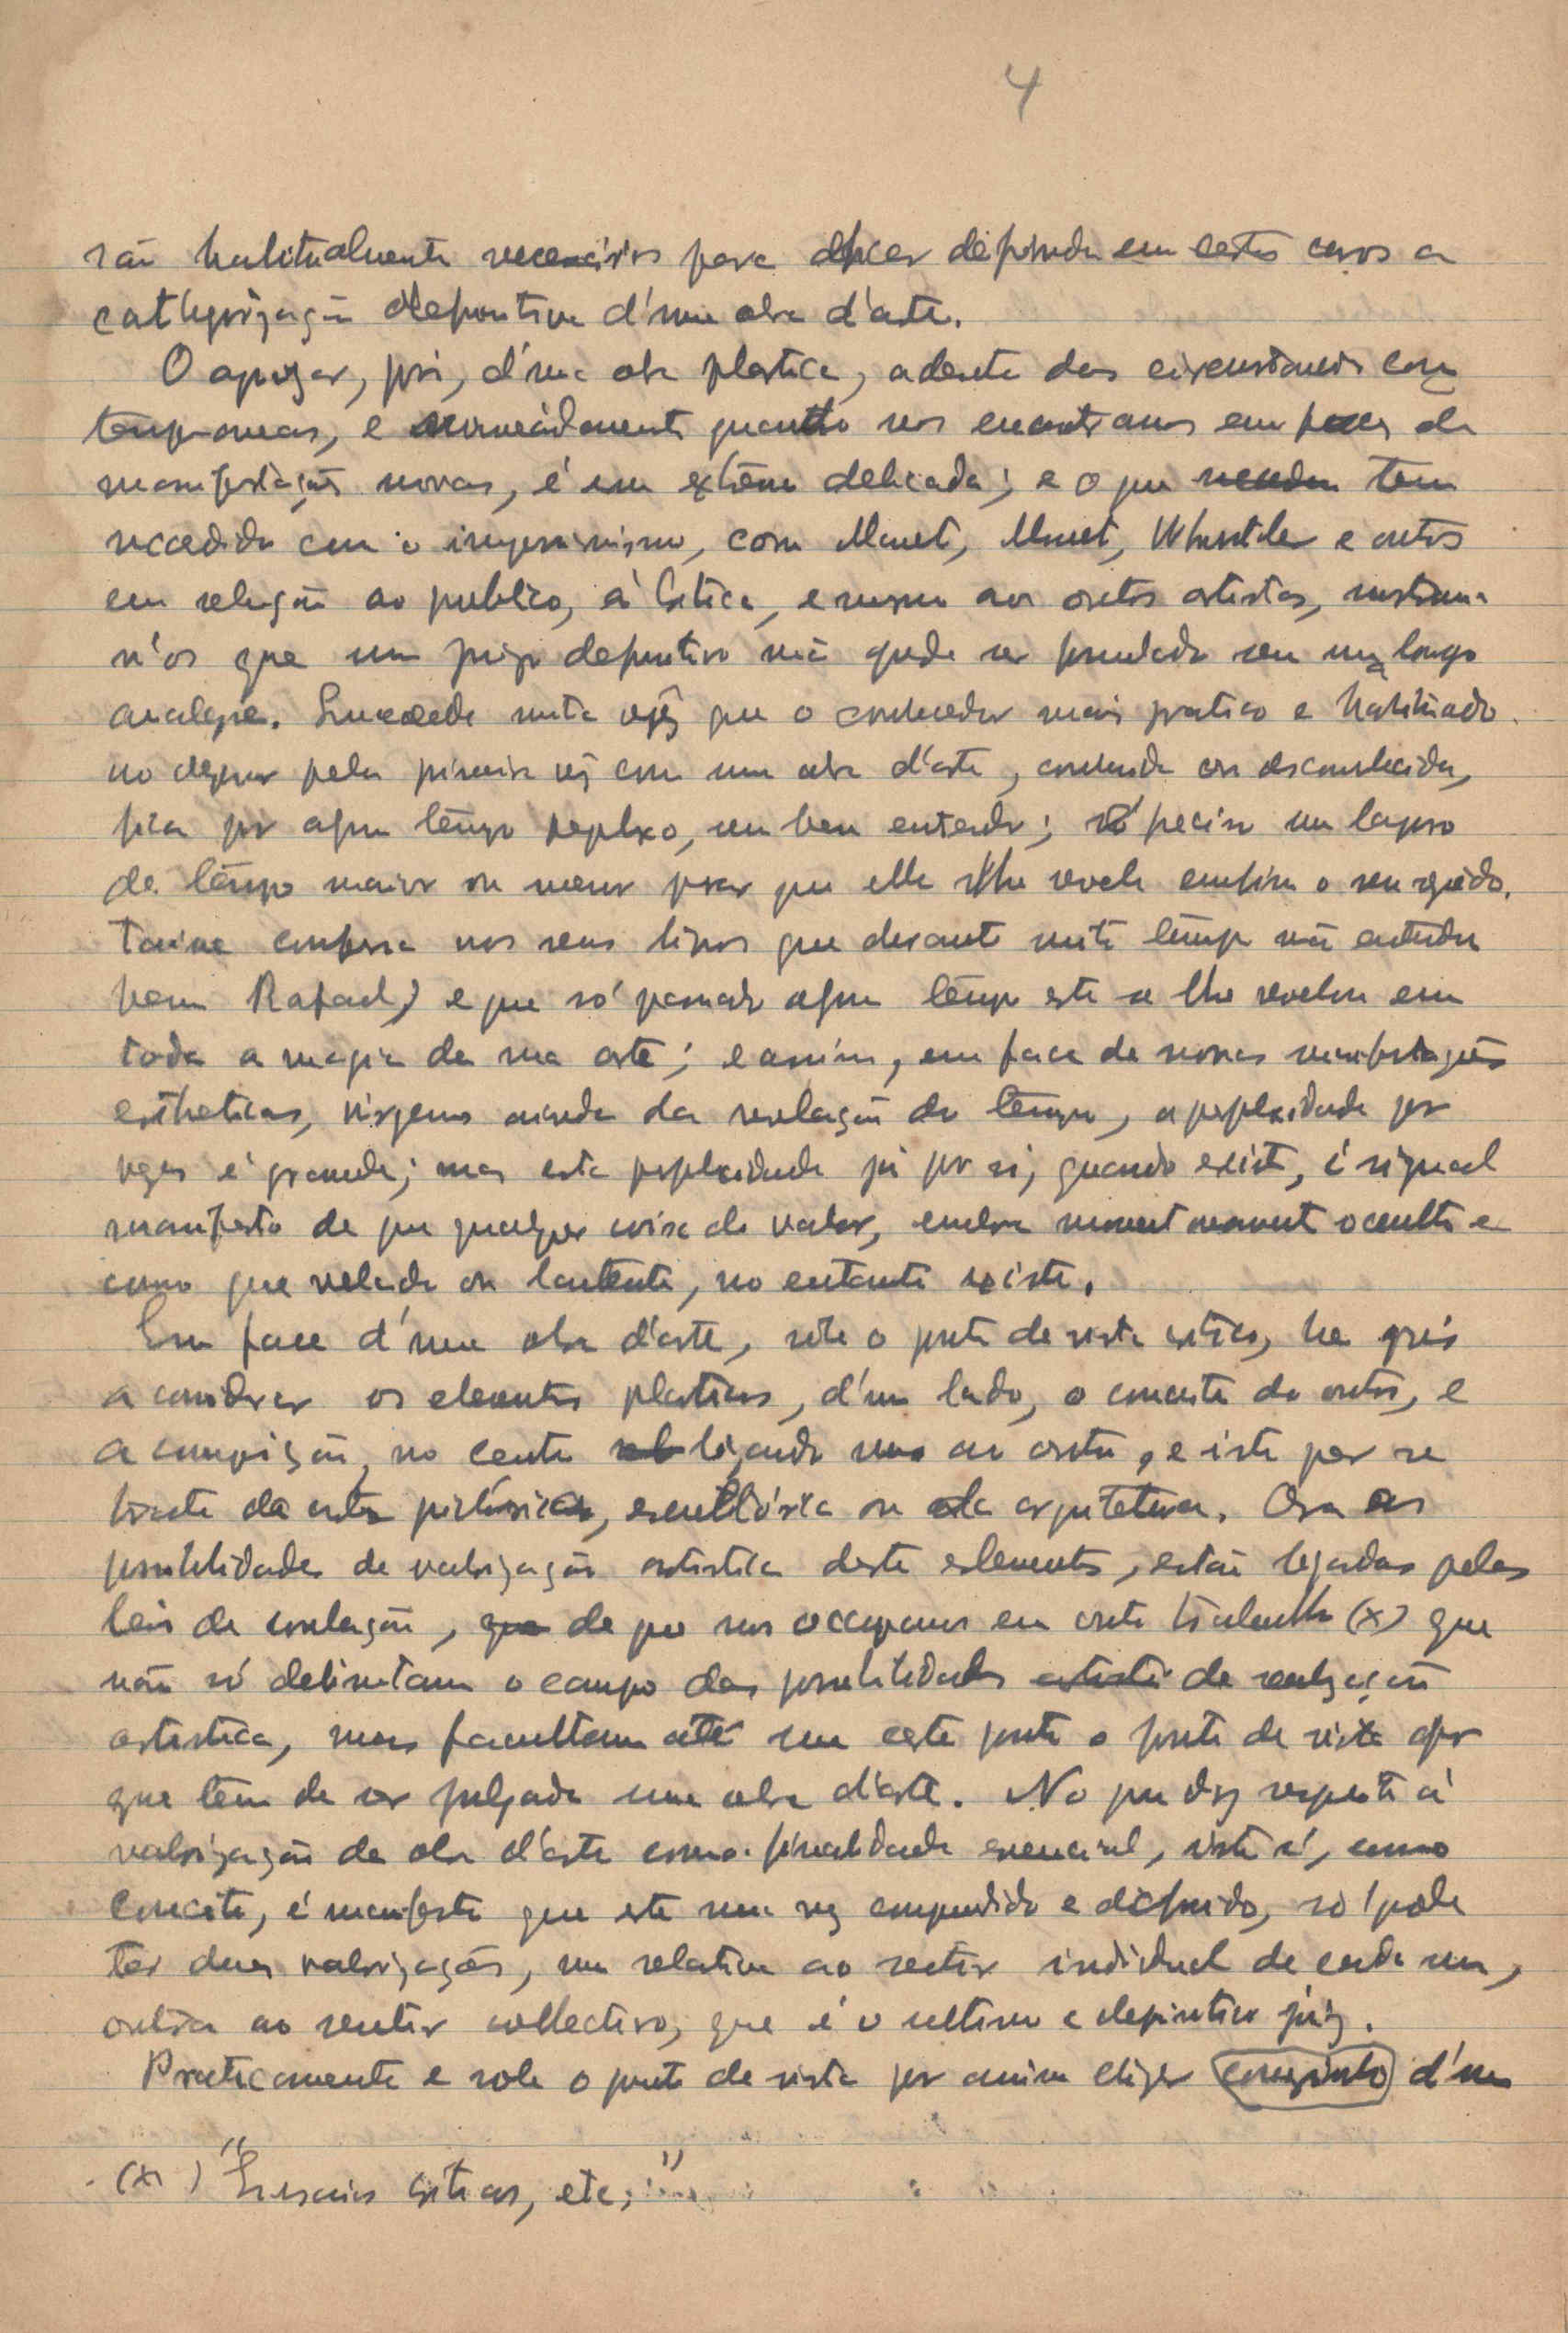 4
são habitualmente necessários para definida em certos casos a
cathegorização definitiva d'uma obra d'arte.
O apreçar, pois, d'uma obra plastica, adentro das circunstancias con
temporaneas, e nomeádamente quando nos encontramos em face de
manifestações novas, é em extrêmo delicada; e o que tem
succedido com o impressionismo, com Manet, Monet, Whistler e outros
em relação ao publico, á Crítica, e mesmo aos outros artistas, mostram
n'os que um juizo definitivo não pode ser formulado sem uma longa
analyse. Succede muita vêz que o conhecedor mais pratico e habituado
ao deparar pela primeira vêz com uma obra d'arte, conhecida ou desconhecida,
fica por algum têmpo perplexo, sem bem entender; é preciso um lapso
de têmpo maior ou menor para que ella lhe revele emfim o seu segrêdo.
Taine confessa nos seus livros que durante muito têmpo não entendeu
bem Rafael, e que só passado algum têmpo este se lhe revelou em
toda a magia da sua arte; e assim, em face de novas manifestações
estheticas, virgens ainda da revelação do têmpo, a perplexidade por
vezes é grande; mas esta perplexidade já por si, quando existe, é signal
manifesto de que qualquer coisa de valor, embora occulta e
como que velada ou lantente, no entanto existe.
Em face d'uma obra d'arte, sob o ponto de vista critico, ha pois
a considerar os elementos plasticos, d'um lado, o conceito do outro, e
a composição, no centro ligando um ao outro, e isto quer se
trate da arte pictórica, escultórica ou da arquitetura. Ora as
possibilidades de valorização artistica destes elementos, estão regadas pelas
leis da correlação, de que nos occupamos em outro trabalho (x) que
não só delimitam o campo das possibilidades de realização
artistica, mas facultam até um certo ponto o ponto de vista por
que têm de ser julgada uma obra d'arte. No que diz respeito á
valorização da obra d'arte como finalidade essencial, isto é, como
conceito, é manifesto que este uma vez compreendido e definido, só pode
ter duas valorizações, uma relativa ao sentir individual de cada um,
outra ao sentir collectivo, que é o ultimo e definitivo juiz.
Praticamente e sob o ponto de vista por assim dizer d'um
(x) "Ensaios criticos, etc."